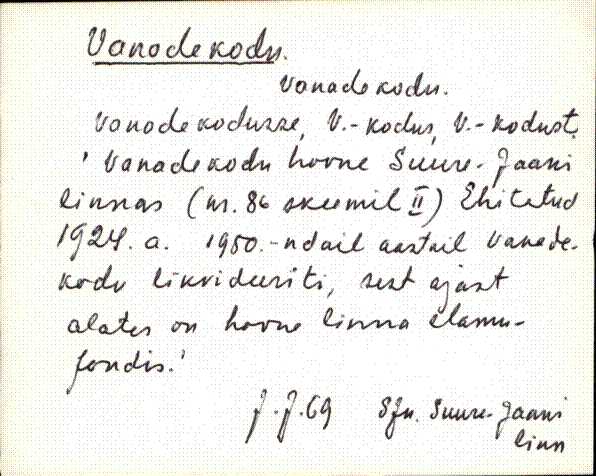 Vanadekodu.
Vanadekodu.
Vanadekodusse, V.-kodus, V.-kodust.
'Vanadekodu hoone Suure-Jaani
linnas (nr. 86 skeemil II) Ehitatud
1924. a. 1950.-ndail aastail Vanade-
kodu likvideeriti, sest ajast
alates on hoone linna elamu-
fondis.'
J. J. 69 SJn. Suure-Jaani
linn